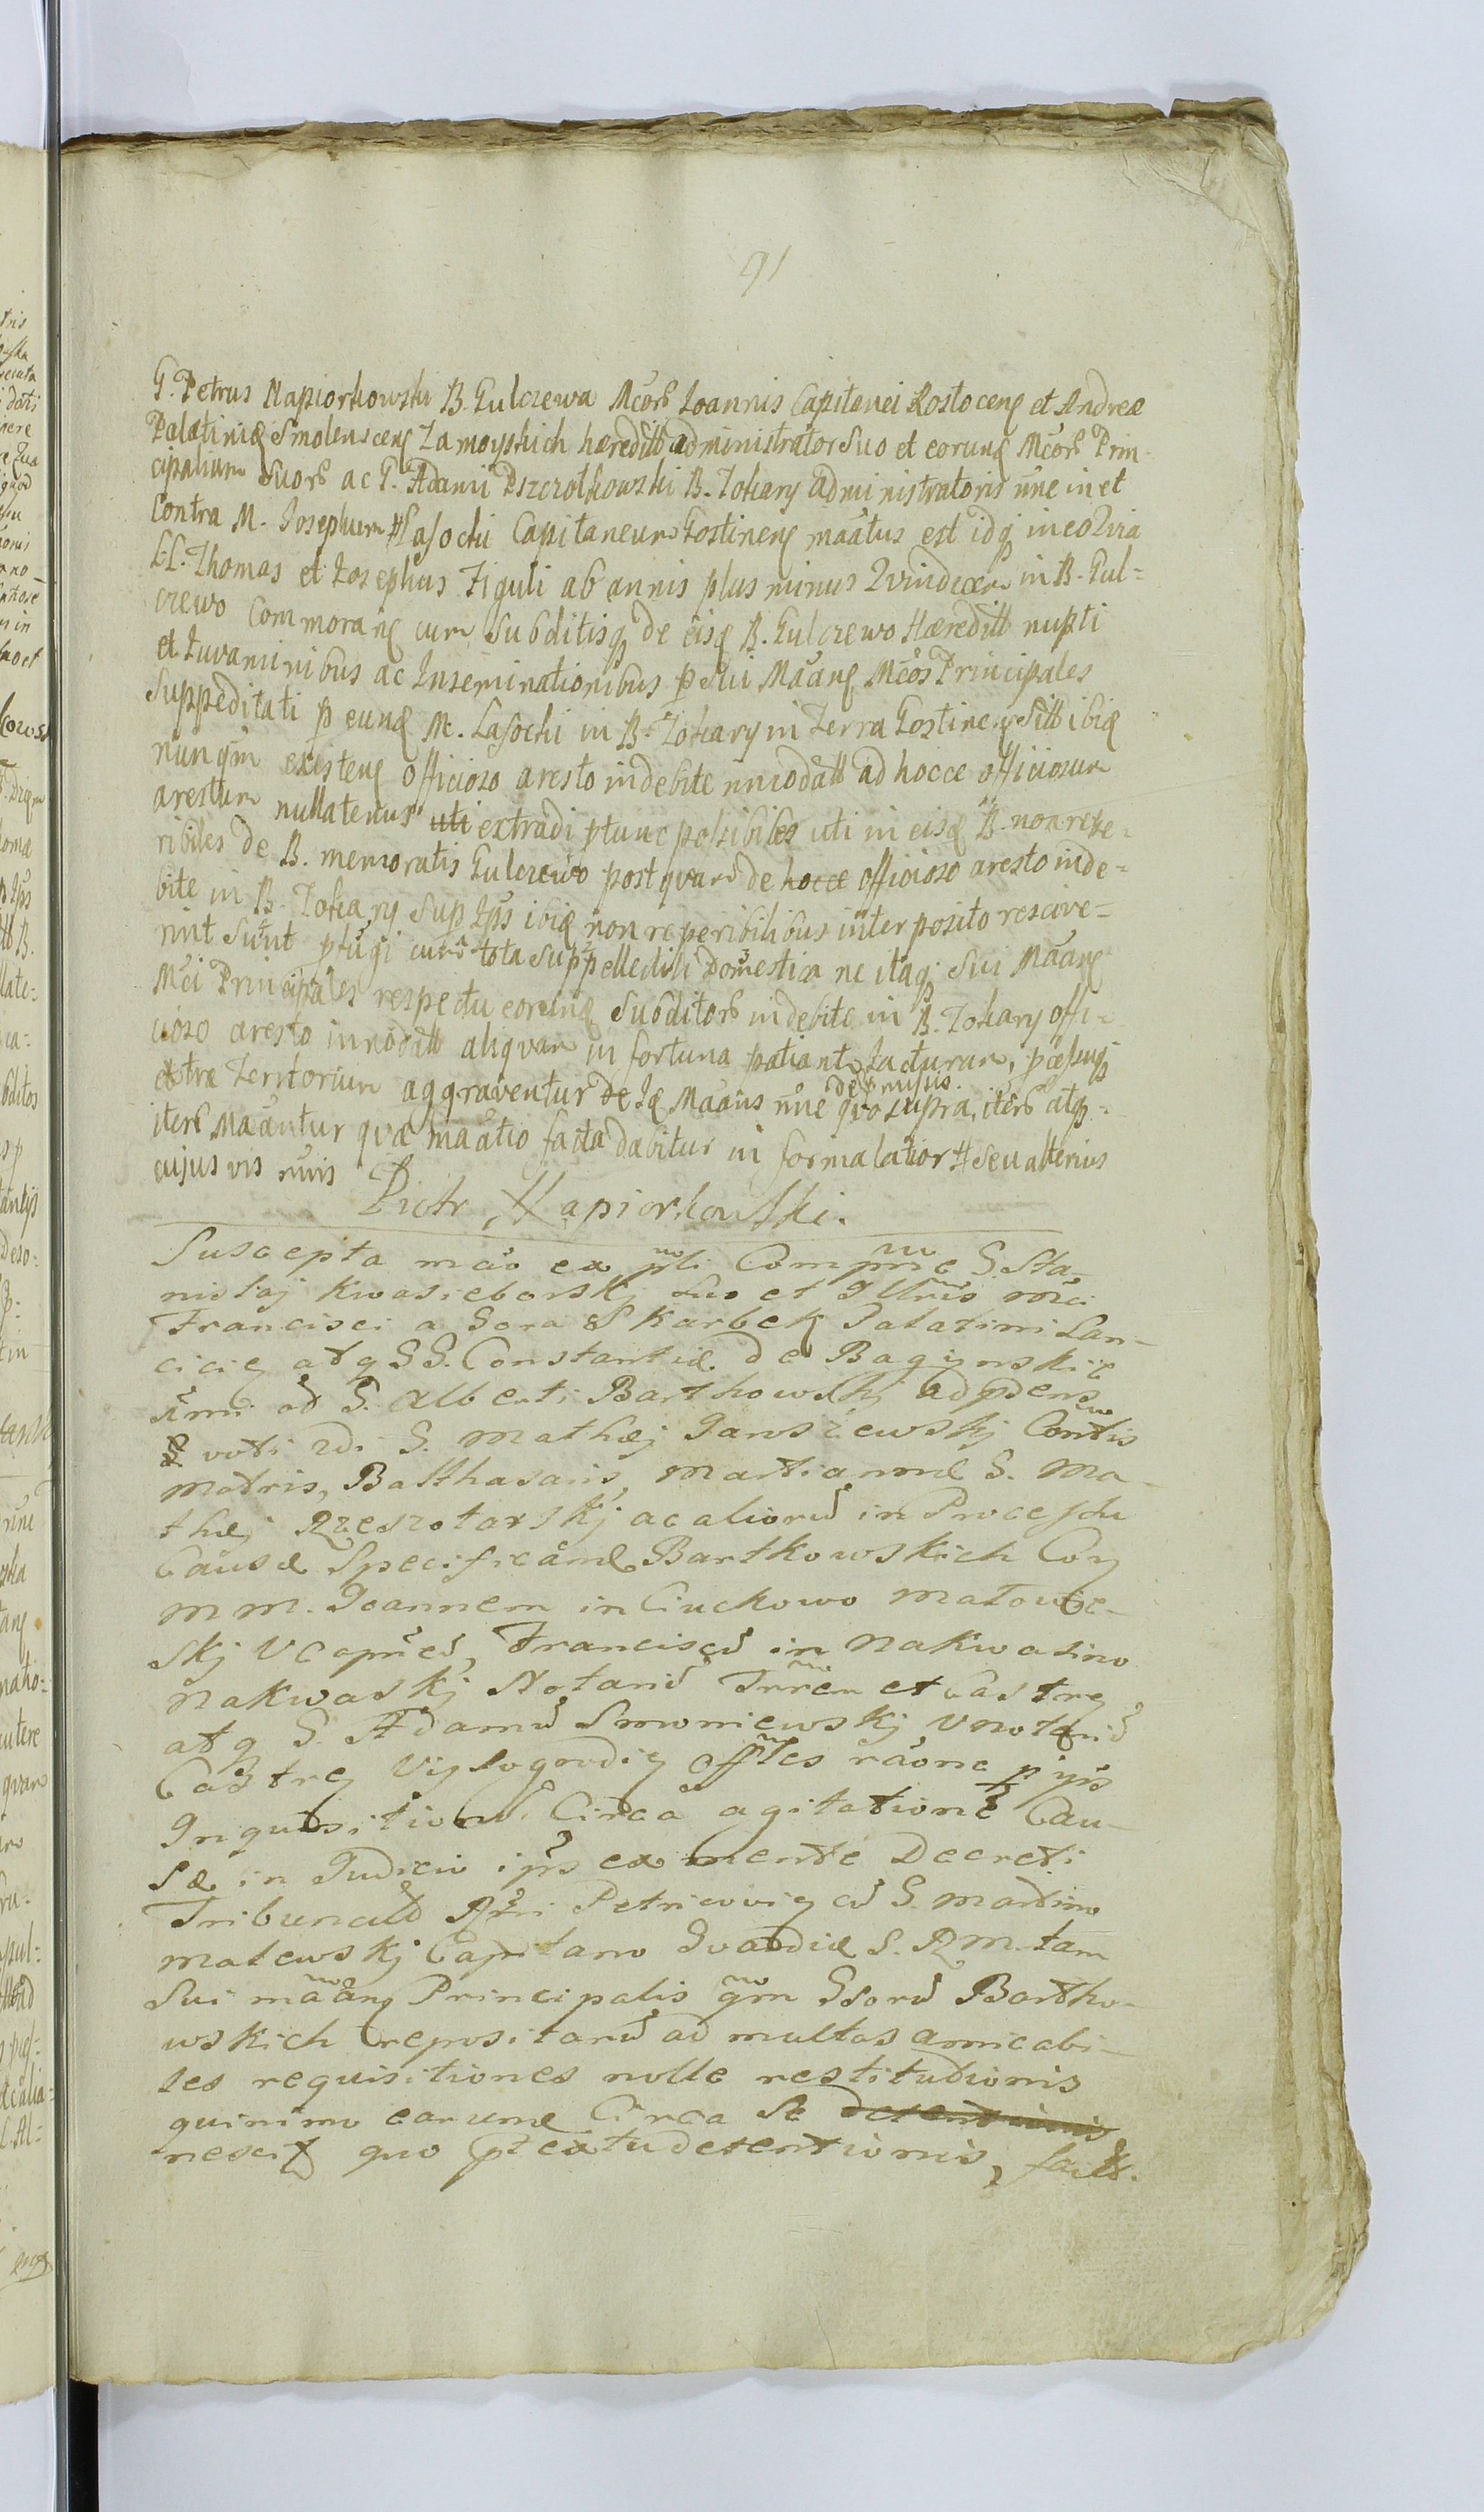 91
G. Petrus Napiorkowski B. Gulczewa Mcorb Ioannis Capitanei Rostocenȩ et Andreæ
Palatinidȩ Smolenscenȩ Zamoyskich hæreditt administrator Suo et eorunȩ Mcorb Prin-
cipalium Suorb ac G. Adami Pszczołkowski B. Tokary administratoris nne in et
Contra M. Josephum Lasocki Capitaneum Gostinenȩ maatus est idq in eo Qvia
LL. Thomas et Josephus Figuli ab annis plus minus Qvindecem in B. Gul=
czewo Commoranȩ cum Subditisq de eisȩ B. Gulczewo Hæreditt nupti
et Iuvaminibus ac Inseminationibus p Sui Maanȩ Mcos Principales
Suppeditati p eunȩ M. Lasocki in B. Tokary in Terra Gostinenȩ Sitt ibiȩ
nunqm existenȩ officioso aresto indebite innodatt ad hocce officiosum
arestum nullatenus uti extradi ptunc possibiles uti in eisȩ B. non repe-
ribiles de B. memoratis Gulczewo postqvam de hocce officioso aresto inde-
bite in B. Tokary Sup Ips ibiȩ non reperibilibus interposito rescive=
rint Sunt pfugi cum tota Suppellectili Domestica ne itaq Sui Maanȩ
Mci Principales respectu eorunȩ Subditorb indebite in B. Tokary offi-
cioso aresto innodatt aliqvam in fortuna patiantr Jacturam,
extra Territorium aggraventur de Iȩ Maans nne qvo supra, iterb atq=
de pmissis.
iterb Maantur qvæ maatio facta dabitur in forma latiori Seu alterius
cujus vis nnis
Piotr Napiorkowski.
Suscepta mao ex pti Compme G. Sta-
nislaj Kwasieborskj Suo et Illris Mci
Francisci a Gora Skarbek Palatini Lan-
ciciȩ atq GG. Constantiæ de Baginskie
 G. Alberti Bartkowskj ad pdens
voti 2di G. Mathæj Janszewskj Contis
Matris, Balthasaris, Martianne G. Ma-
thæj Rzeszotarskj ac aliorum in Processu
Causæ Specificanȩ Bartkowskich Con
M M. Joannem in Ciuckowo Matowie-
skj V Capneum, Franciscum in Nakwasino
Nakwaskj Notarium Trrem et Castrȩ
atq G. Adamum Smoniewskj VNotarium
Castrȩ Vyssogrodiȩ Offles raone p ips
Inquisitionum Circa agitationem Cau-
sæ in Judicio ips ex mente Decreti
Tribunalis Rgni Petricoviȩ cum G. Martino
Malewskj Capitano Gvardiæ S. R. M. tam
Sui maanȩ Principalis qm Gsorum Bartko-
wskich repositarum ad multas amicabi-
les requisitiones nolle restitutionis
quinimo earumȩ Circa Se detentionis
nescitr quo ptextu detentionis, facts.